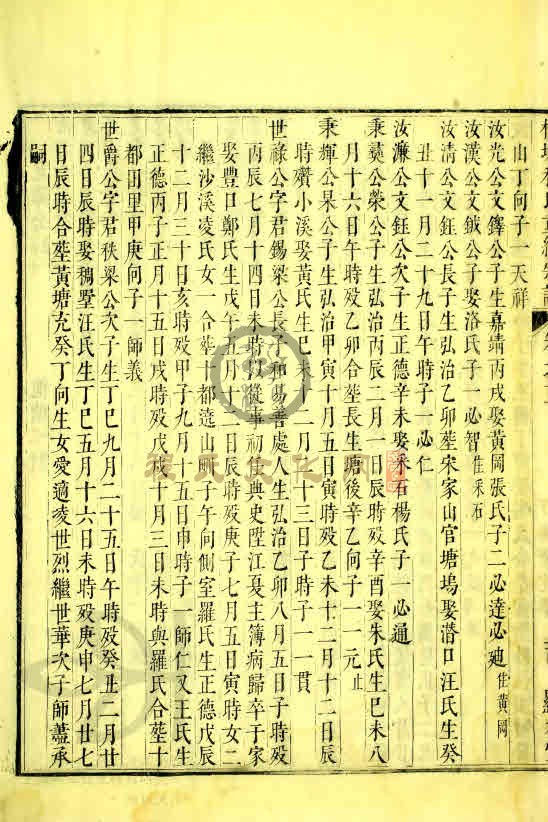 山丁向子一天祥
汝光公文鐸公子生嘉靖丙戌娶黃岡張氏子二必達必廸住黃岡
汝漢公文鉞公子娶洛氏子一必智住采石
汝清公文鈺公長子生弘治乙卯塟宋家山官塘塢娶潛口汪氏生癸
丑十一月二十九日午時子一必仁
汝濂公文鈺公次子生正德辛未娶采石楊氏子一必通
秉彝公榮公子生弘治丙辰二月一日辰時歿辛酉娶朱氏生己未八
月十六日午時歿乙卯合塟長生塘後辛乙向子一一元止
秉輝公杲公子生弘治甲寅十月五日寅時歿乙未十二月十二日辰
時殯小溪娶黃氏生己未十二月二十三日子時子一一貫
世祿公字君錫梁公長子和易善處人生弘治乙卯八月五日子時歿
丙辰七月十四日未時以從事初仕典史陞江夏主簿病歸卒于家
娶豐口鄭氏生戊午五月十二日辰時歿庚子七月五日寅時女二
繼沙溪凌氏女一合塟十都遶山嘶子午向側室羅氏生正德戊辰
十二月三十日亥時歿甲子九月十五日申時子一師仁又王氏生
正德丙子正月十五日戌時歿戊戌十月三日未時與羅氏合塟十
都田里甲庚向子一師義
世爵公字君秩梁公次子生丁巳九月二十五日午時歿癸丑二月廿
四日辰時娶稠墅汪氏生丁巳五月十六日未時歿庚申七月廿七
日辰時合塟黃塘充癸丁向生女愛適凌世烈繼世華次子師藎承
嗣